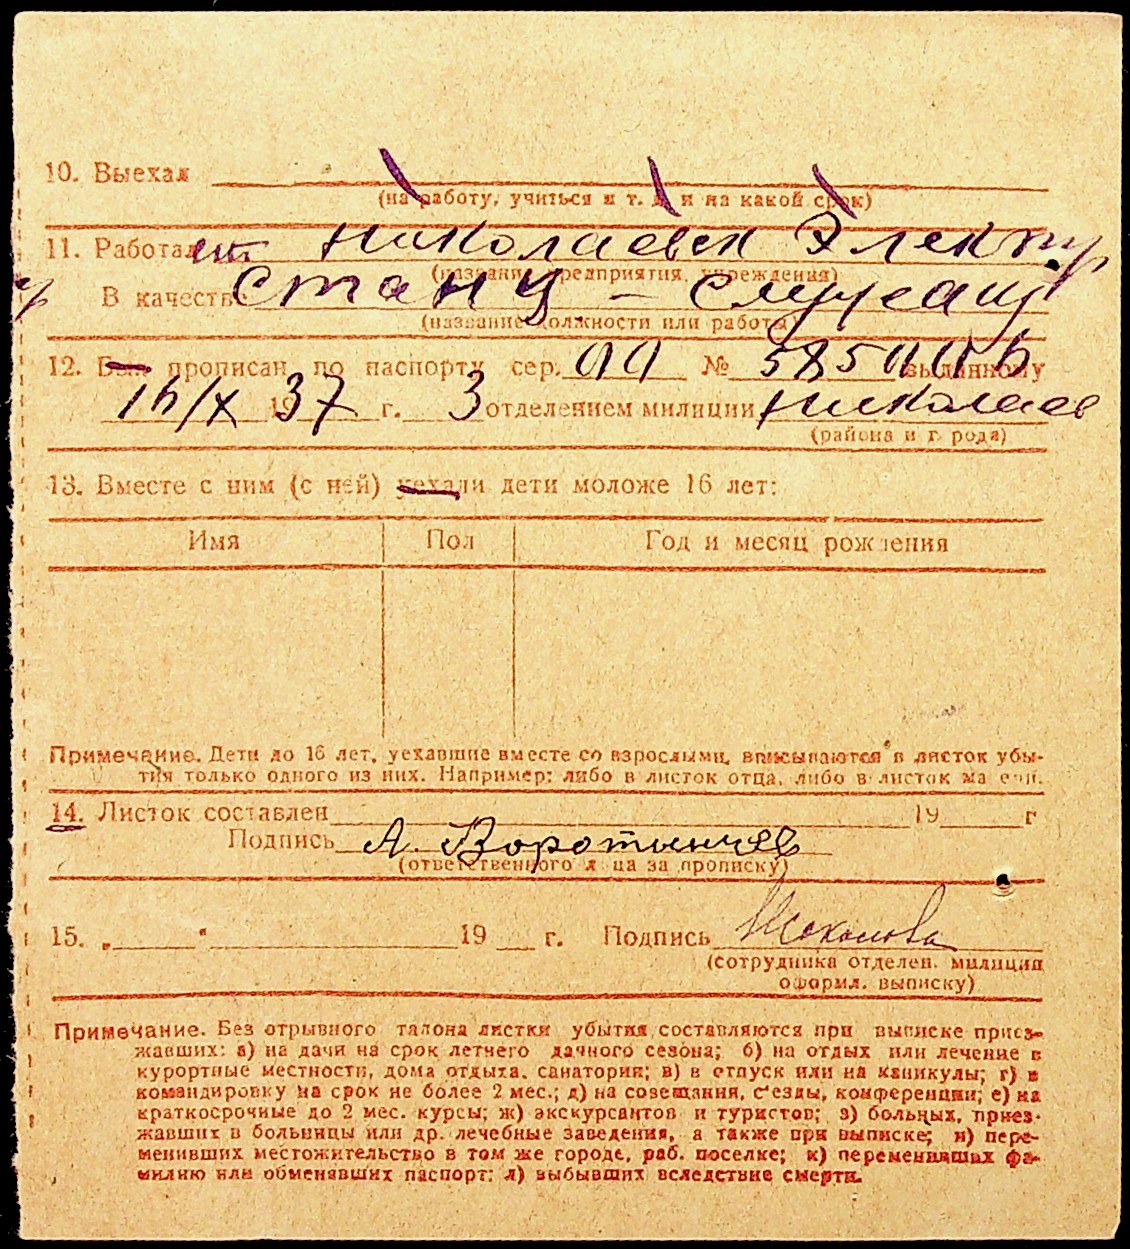 10. Выехал
(на работу, учиться и т. д. и на какой срок)
11. Работал Николаевск Электр
(название предприятия, учреждения)
В качестве Станц – Служащ
(название должности или работы)
12. Был прописан по паспорту сер. № выданному
16/X 1937 г. 3 отделением милиции Николаев
(района и города)
13. Вместе с ним (с ней) уехали дети моложе 16 лет:
Имя Пол Год и месяц рождения
Примечание. Дети до 16 лет, уехавшие вместе со взрослыми, вписываются в листок убы-
тия только одного из них. Например: либо в листок отца, либо в листок матери.
14. Листок составлен 19 г
Подпись А. Воротынцев
(ответственного лица за прописку)
15. „ “ 19 г. Подпись Соколова
(сотрудника отделен. милиции
оформл. выписку)
Примечание. Без отрывного талона листки убытия составляются при выписке приез-
жавших: а) на дачи на срок летнего дачного сезона; б) на отдых или лечение в
курортные местности, дома отдыха, санатории; в) в отпуск или на каникулы; г) в
командировку на срок не более 2 мес.; д) на совещания, съезды, конференции; е) на
краткосрочные до 2 мес. курсы; ж) экскурсантов и туристов; з) больных, приез-
жавших в больницы или др. лечебные заведения, а также при выписке; и) пере-
менивших местожительство в том же городе, раб. поселке; к) переменивших фа-
милию или обменявших паспорт; л) выбывших вследствие смерти.